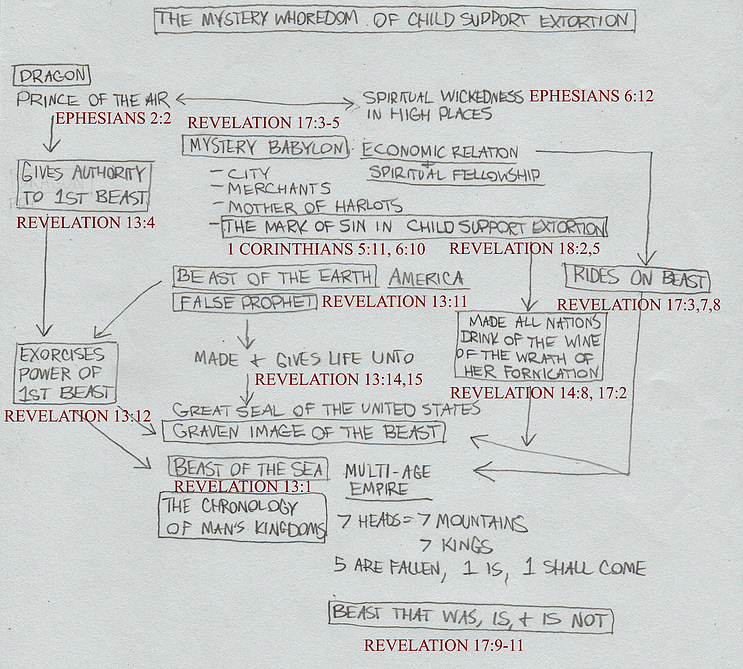 THE MYSTERY WHOREDOM OF CHILD SUPPORT EXTORTION
DRAGON
PRINCE OF THE AIR
EPHESIANS 2:2
SPIRITUAL WICKEDNESS EPHESIANS 6:12
IN HIGH PLACES
REVELATION 17:3-5
MYSTERY BABYLON
ECONOMIC RELATION
+
SPIRITUAL FELLOWSHIP
GIVES AUTHORITY
TO 1ST BEAST
REVELATION 13:4
- CITY
- MERCHANTS
- MOTHER OF HARLOTS
- THE MARK OF SIN IN CHILD SUPPORT EXTORTION
1 CORINTHIANS 5:11, 6:10 REVELATION 18:2,5
BEAST OF THE EARTH AMERICA
FALSE PROPHET REVELATION 13:11
RIDES ON BEAST
REVELATION 17:3,7,8
MADE ALL NATIONS
DRINK OF THE WINE
OF THE WRATH OF
HER FORNICATION
REVELATION 14:8, 17:2
EXORCISES
POWER OF
1ST BEAST
REVELATION 13:12
MADE + GIVES LIFE UNTO
REVELATION 13:14,15
GREAT SEAL OF THE UNITED STATES
GRAVEN IMAGE OF THE BEAST
BEAST OF THE SEA
REVELATION 13:1
MULTI-AGE
EMPIRE
THE CHRONOLOGY
OF MAN'S KINGDOMS
7 HEADS = 7 MOUNTAINS
7 KINGS
5 ARE FALLEN, 1 IS, 1 SHALL COME
BEAST THAT WAS, IS, + IS NOT
REVELATION 17:9-11